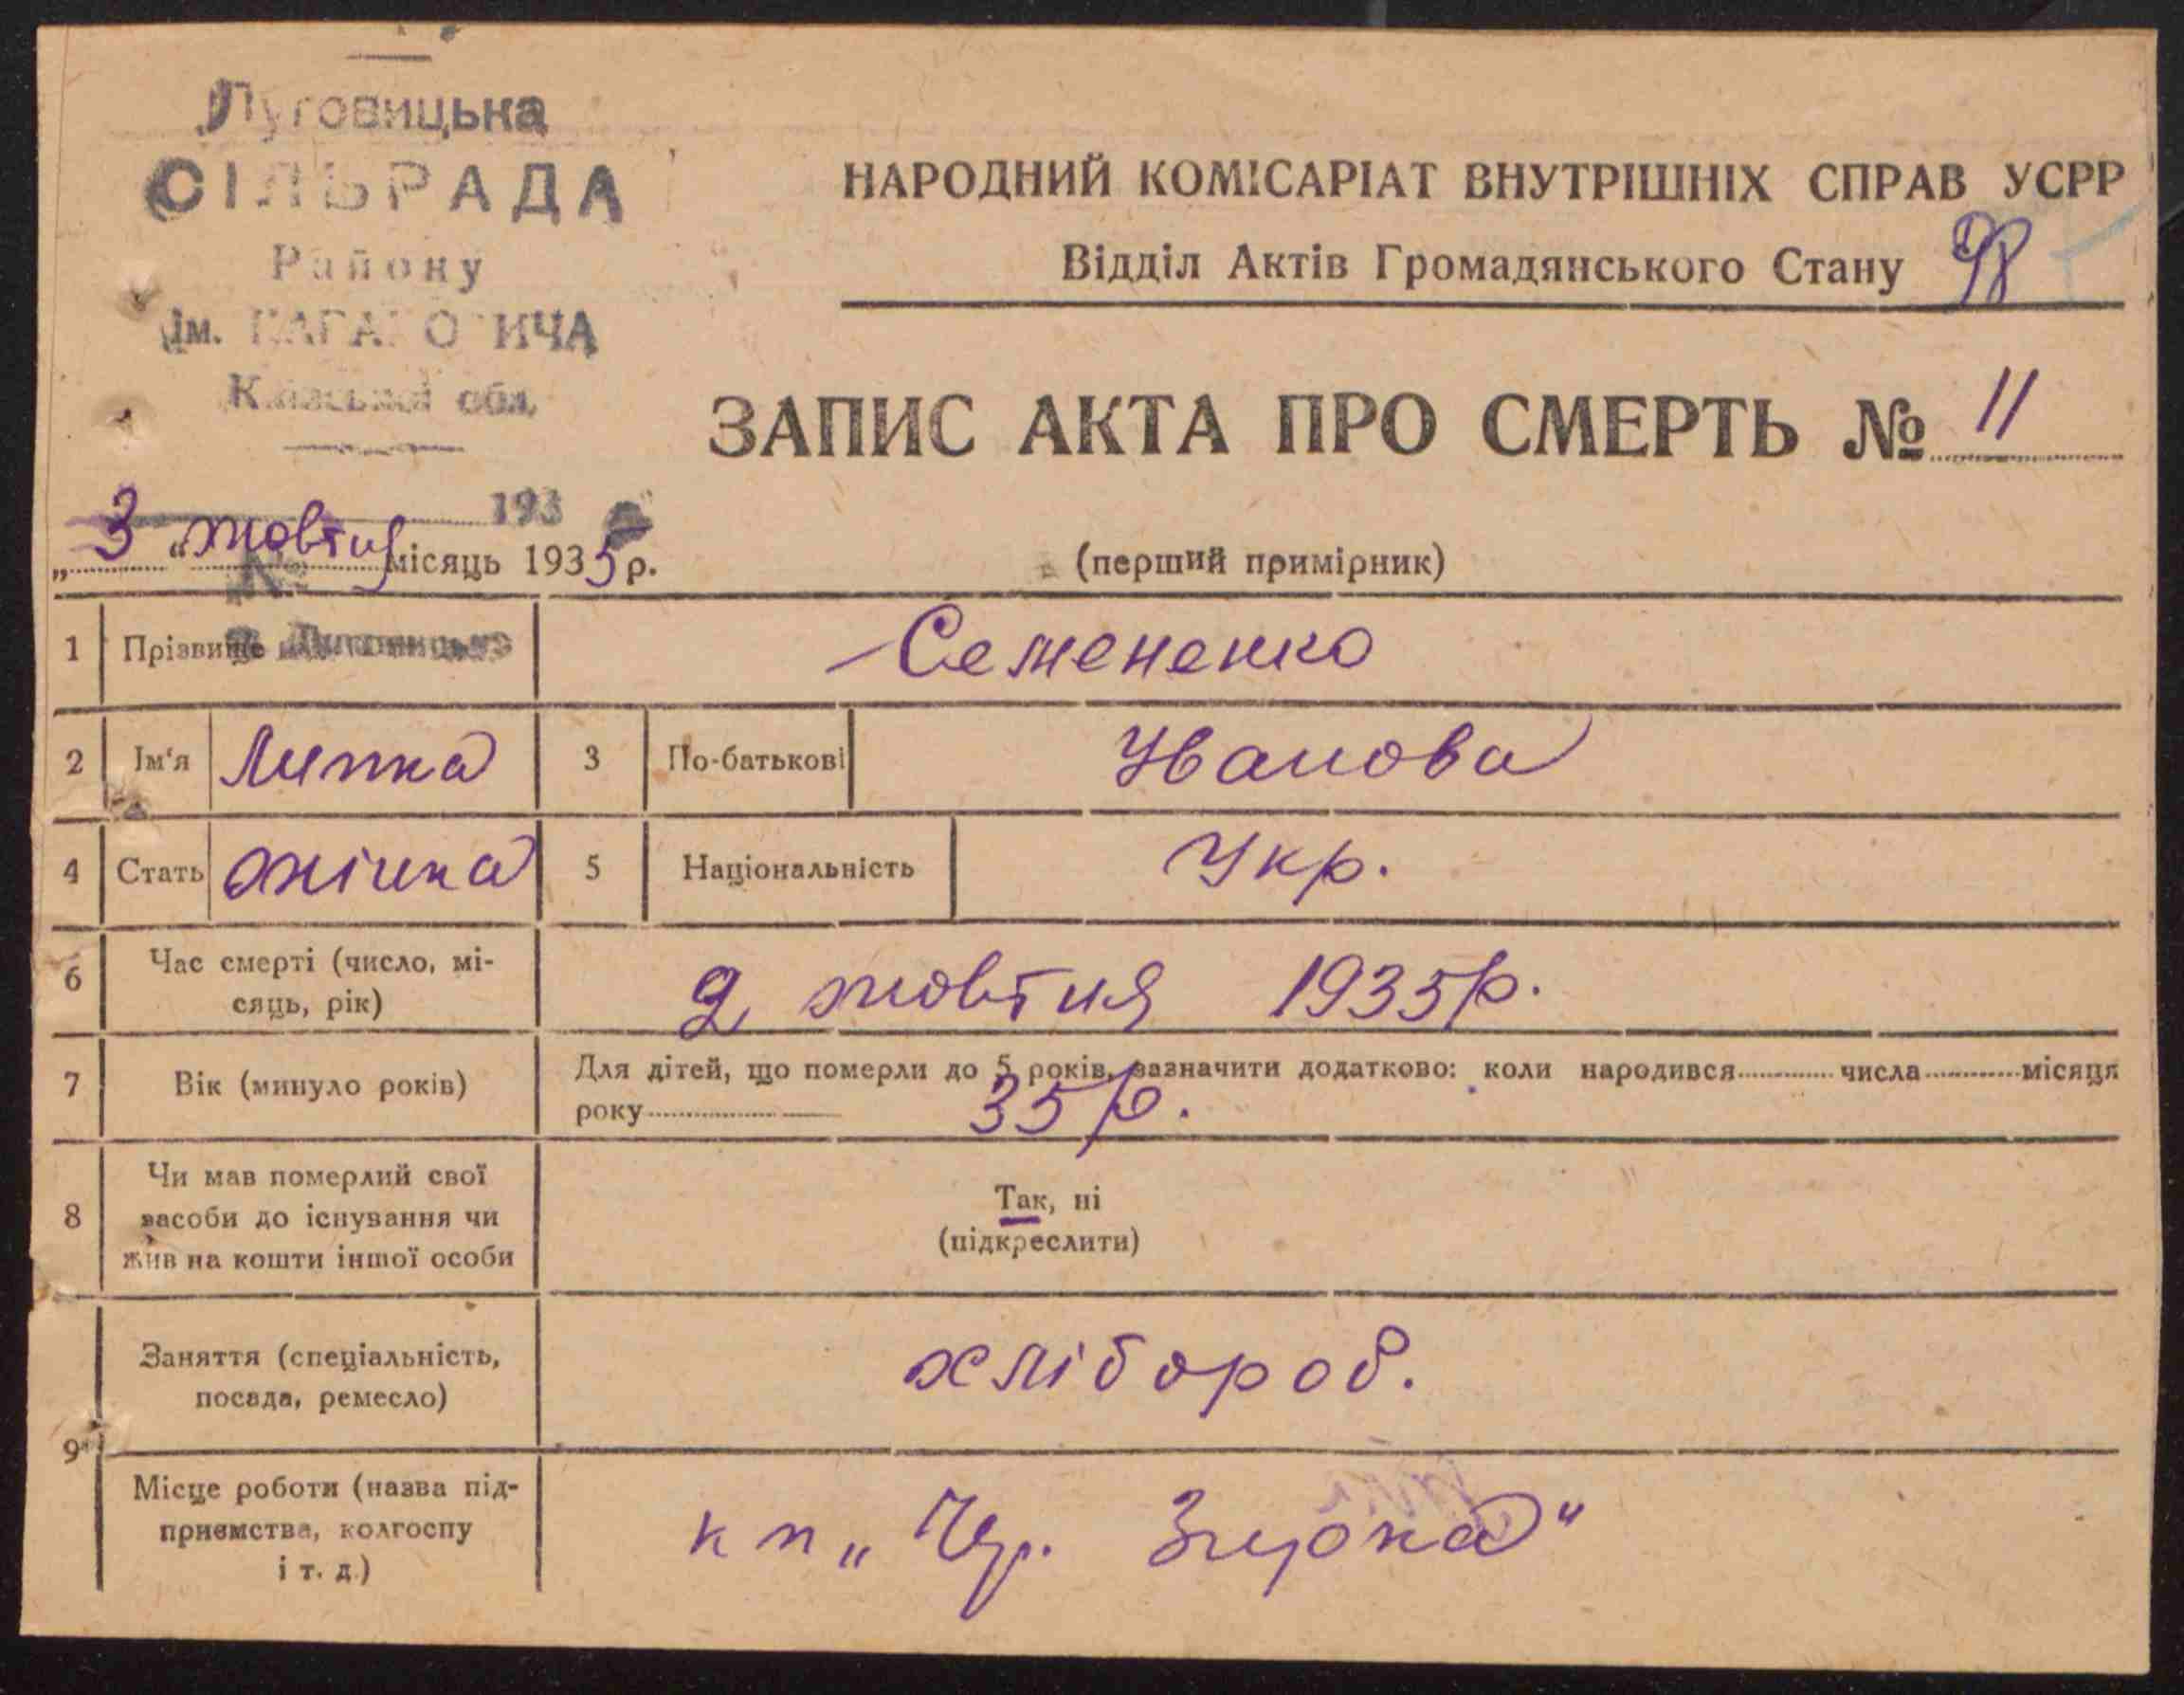 Луговицька
СІЛЬРАДА
Району
Ім. КАГАНОВИЧА
Київської обл.
193
№
НАРОДНИЙ КОМІСАРІАТ ВНУТРІШНІХ СПРАВ УСРР
Відділ Актів Громадянського Стану 98
ЗАПИС АКТА ПРО СМЕРТЬ № 11
„3“ жовтня місяць 1935 р.
(перший примірник)
1 Прізвище Семененко
2 Ім'я Липка 3 По-батькові Иванова
4 Стать жінка 5 Національність Укр.
6 Час смерті (число, мі-
сяць, рік) 2 жовтня 1935р.
7 Вік (минуло років) Для дітей, що померли до 5 років, зазначити додатково: коли народився числа місяця
року 35 р.
8 Чи мав померлий свої
засоби до існування чи
жив на кошти іншої особи
Так, ні
(підкреслити)
9 Заняття (спеціальність,
посада, ремесло) хлібороб.
Місце роботи (назва під-
приємства, колгоспу
і т. д.)
к п „Чер. Зирка“